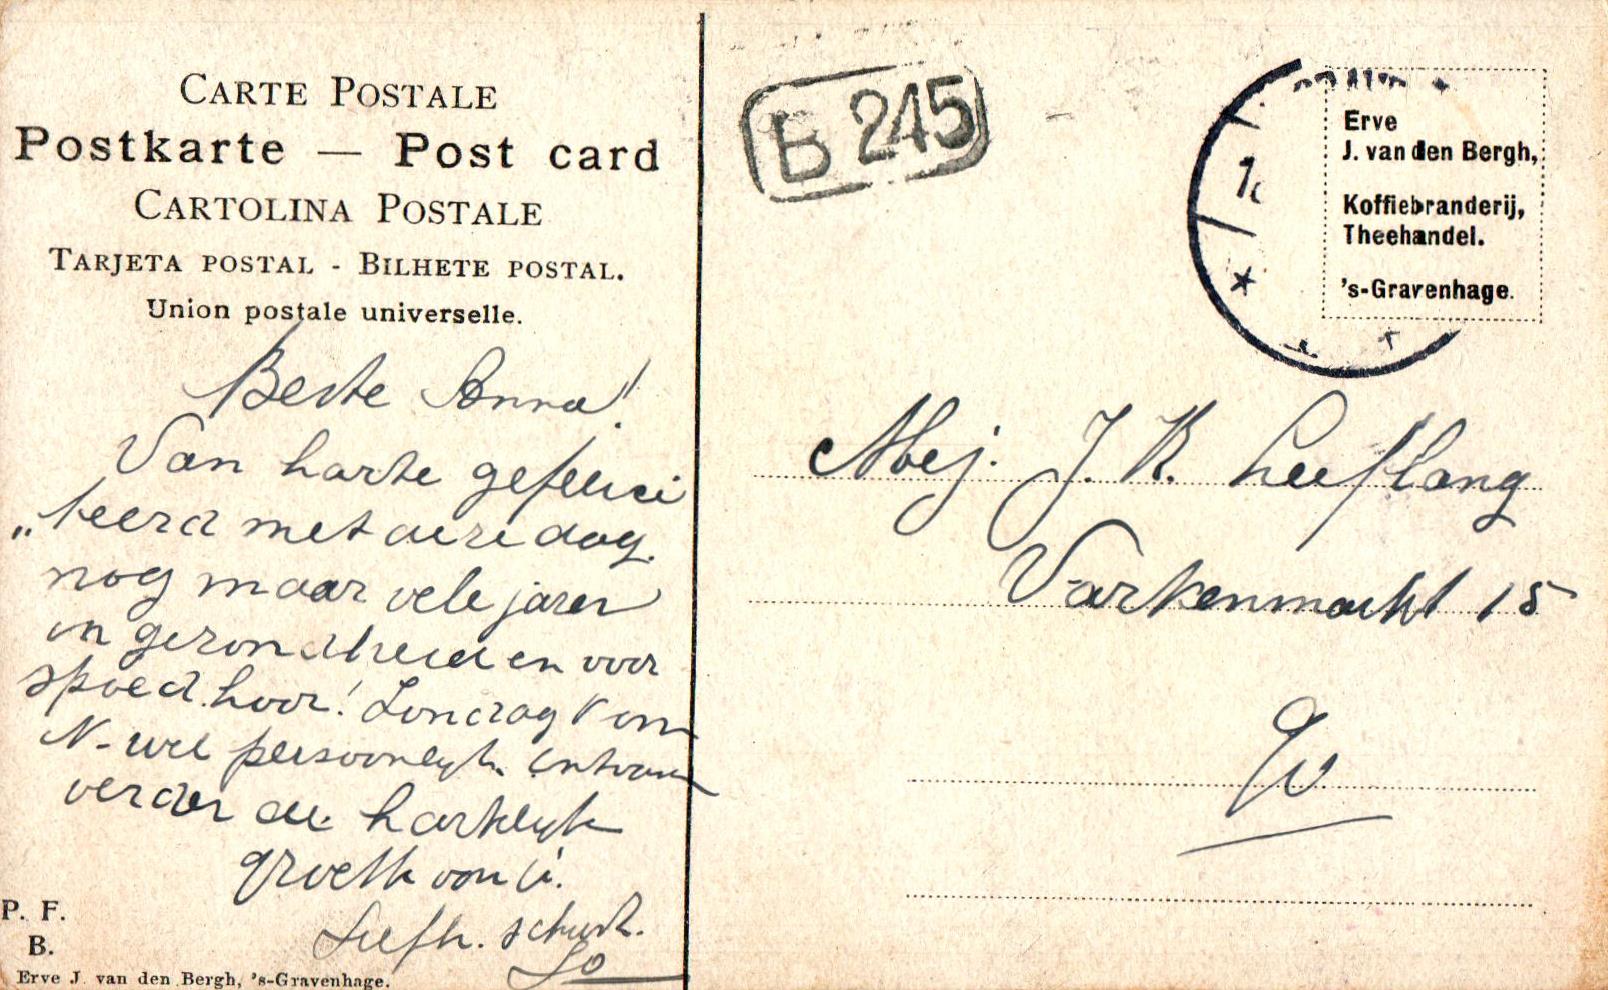 CARTE POSTALE
Postkarte — Post card
CARTOLINA POSTALE
TARJETA POSTAL - BILHETE POSTAL.
Union postale universelle.
Beste Anna!
Van harte gefelici
„teerd met deze dag.
nog maar vele jaren
in gezondheid en voor
spoed hoor! Zondag V om
N- wel persoonlijk
verder de hartelijk
groeth van
Liefh. schurk.
Jo
P. F.
B.
Erve J. van den Bergh, 's-Gravenhage.
B 245
Erve
J. van den Bergh,
Koffiebranderij,
Theehandel.
's-Gravenhage.
Mej. J. K. Leeflang
Varkenmarkt 15